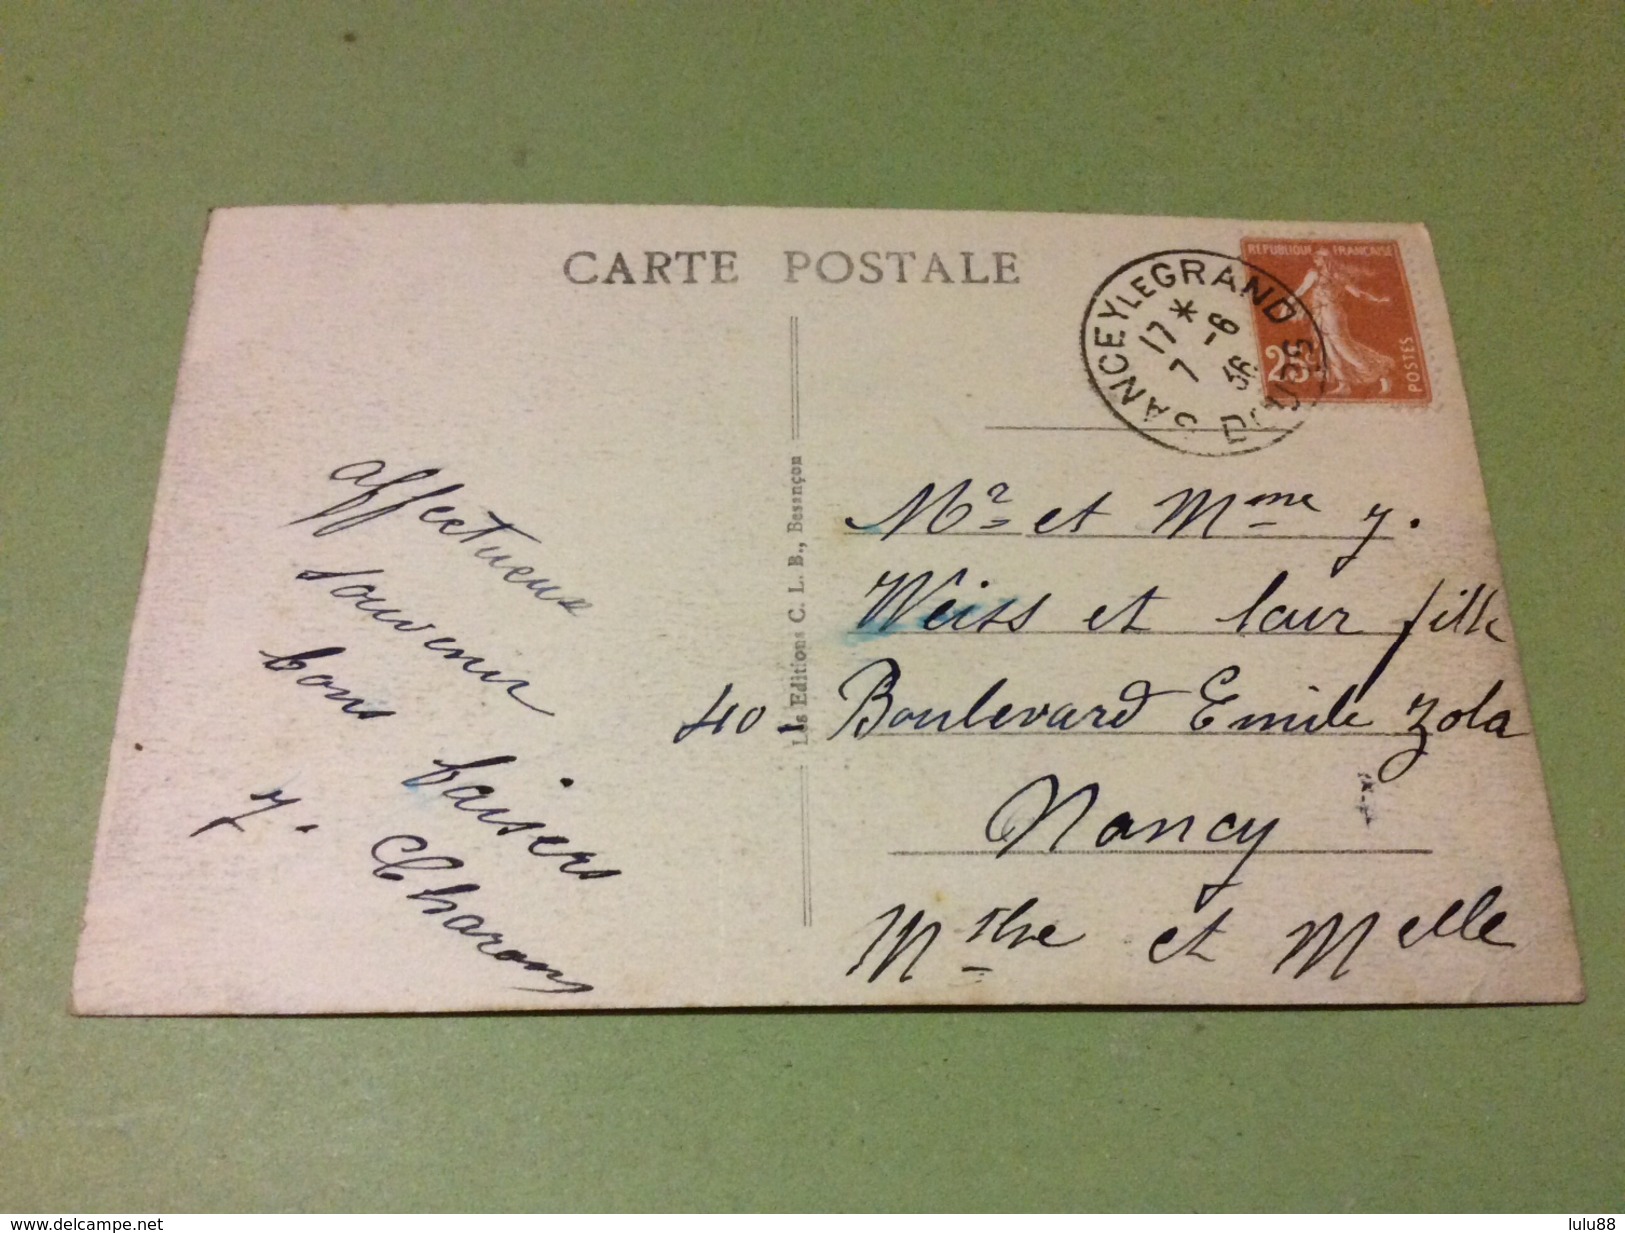 CARTE POSTALE
RÉPUBLIQUE FRANÇAISE
25c
POSTES
SANCEY LE GRAND
17 *
7 -6
36
DOUBS
affectueux
souvenir
bons baisers
J. Charon
Les Editions C. L. B., Besançon
Mr et Mme J.
Weiss et leur fille
40 - Boulevard Emile Zola
Nancy
Mthe et Melle
delcampe.net
lulu88